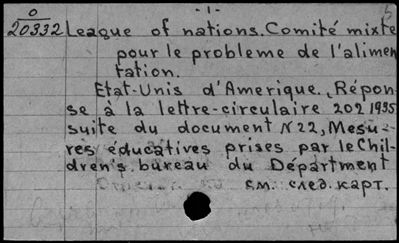 0 - 1 - 5
20332 League of nations. Comité mixte
pour le probleme de l'alimen
tation.
Etat-Unis d'Amerique. Répon-
se à la lettre-circulaire 202 1935
suite du document N22, Mesu-
res éducatives prises par le Chil-
dren's bureau du Département
см. след. карт.